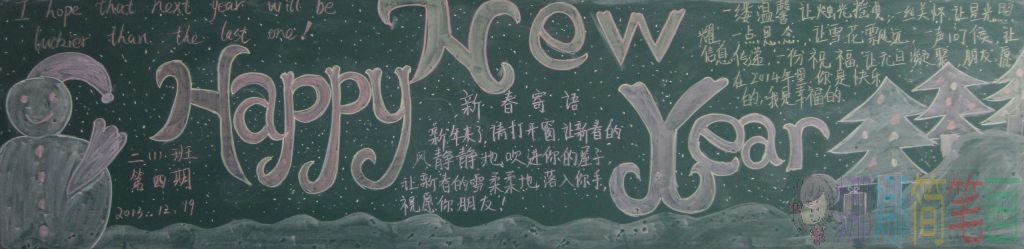 I hope that next year will be
luckier than the last one!
Happy New Year
二(1)班
第四期
2013.12.19
新春寄语
新年来了,请打开窗,让新春的
风静静地吹进你的屋子
让新春的雪柔柔地落入你手,
祝愿你朋友!
缕温馨让烛光摇曳,丝关怀让星光照
耀,一点思念,让雪花飘远,一声问候,让
信息传递,一份祝福,让元旦凝聚,朋友,愿
在2014年里,你是快乐
的,我是幸福的
简笔